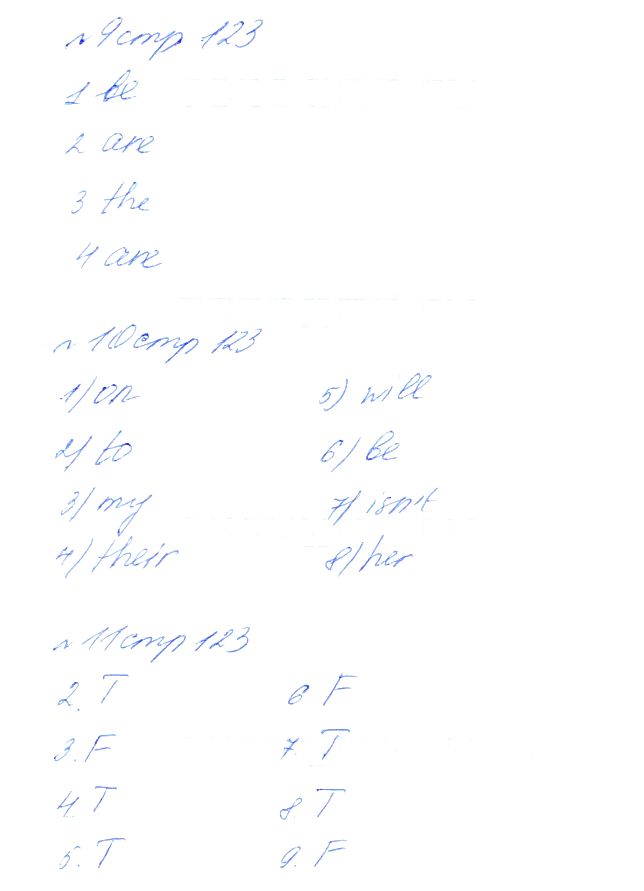 №9 стр 123
1 be
2 are
3 the
4 are
№10 стр 123
1) on
2) to
3) my
4) their
5) will
6) be
7) isn't
8) her
№11 стр 123
2. T
3. F
4. T
5. T
6 F
7. T
8. T
9. F